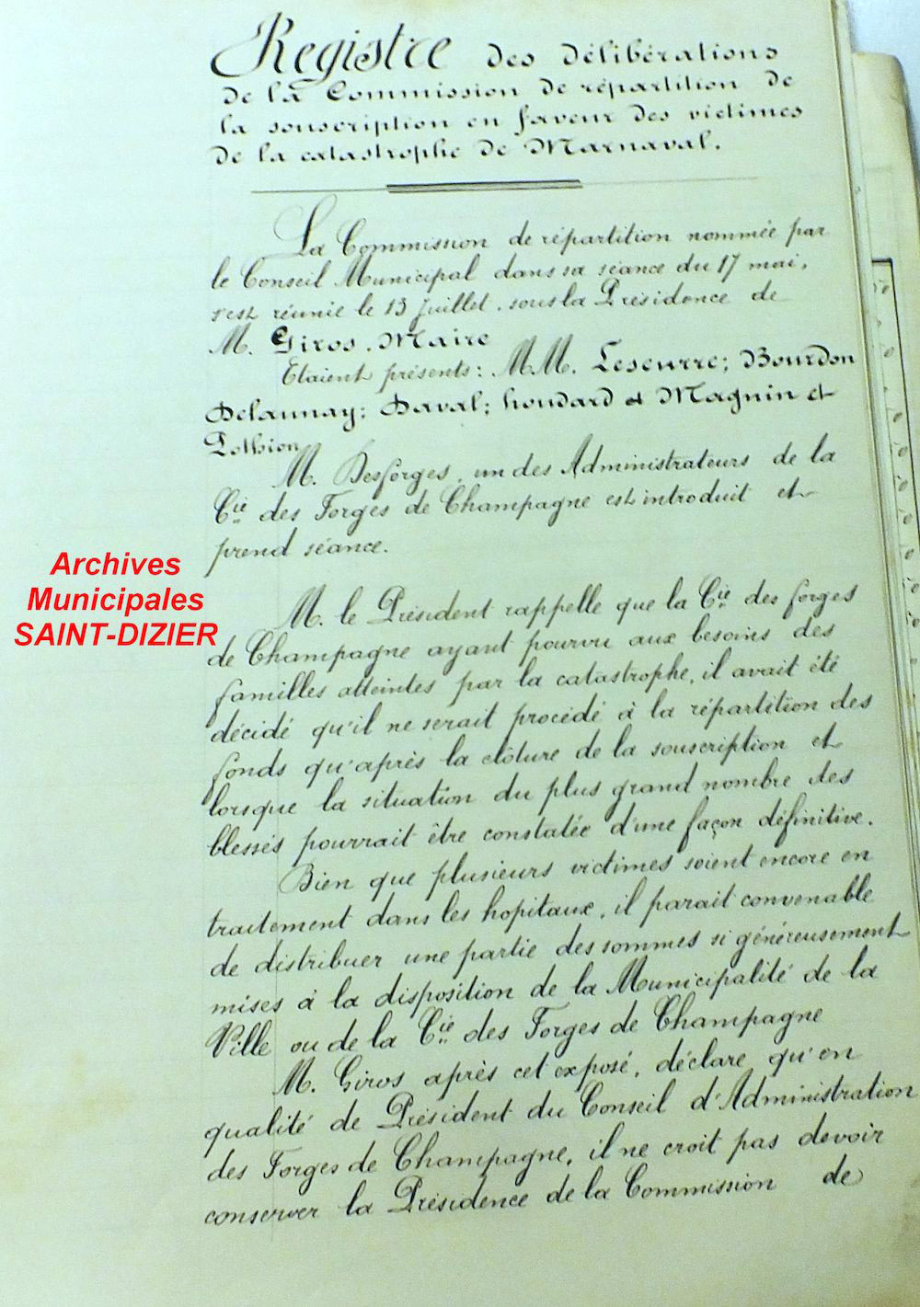 Registre des délibérations
de la Commission de répartition de
la souscription en faveur des victimes
de la catastrophe de Marnaval.
La Commission de répartition nommée par
le Conseil Municipal dans sa séance du 17 mai,
s'est réunie le 13 Juillet, sous la Présidence de
M. Giros, Maire
Etaient présents: M.M. Leseurre; Bourdon
Delaunay; Daval; houdard et Magnin et
M. Desforges, un des Administrateurs de la
Cie des Forges de Champagne est introduit et
prend séance.
Archives
Municipales
SAINT-DIZIER
M. le Président rappelle que la Cie des forges
de Champagne ayant pourvu aux besoins des
familles atteintes par la catastrophe, il avait été
décidé qu'il ne serait procédé à la répartition des
fonds qu'après la clôture de la souscription et
lorsque la situation du plus grand nombre des
blessés pourrait être constatée d'une façon définitive.
Bien que plusieurs victimes soient encore en
traitement dans les hopitaux, il parait convenable
de distribuer une partie des sommes si généreusement
mises à la disposition de la Municipalité de la
Ville ou de la Cie des Forges de Champagne
M. Giros après cet exposé, déclare qu'en
qualité de Président du Conseil d'Administration
des Forges de Champagne, il ne croit pas devoir
conserver la Présidence de la Commission de